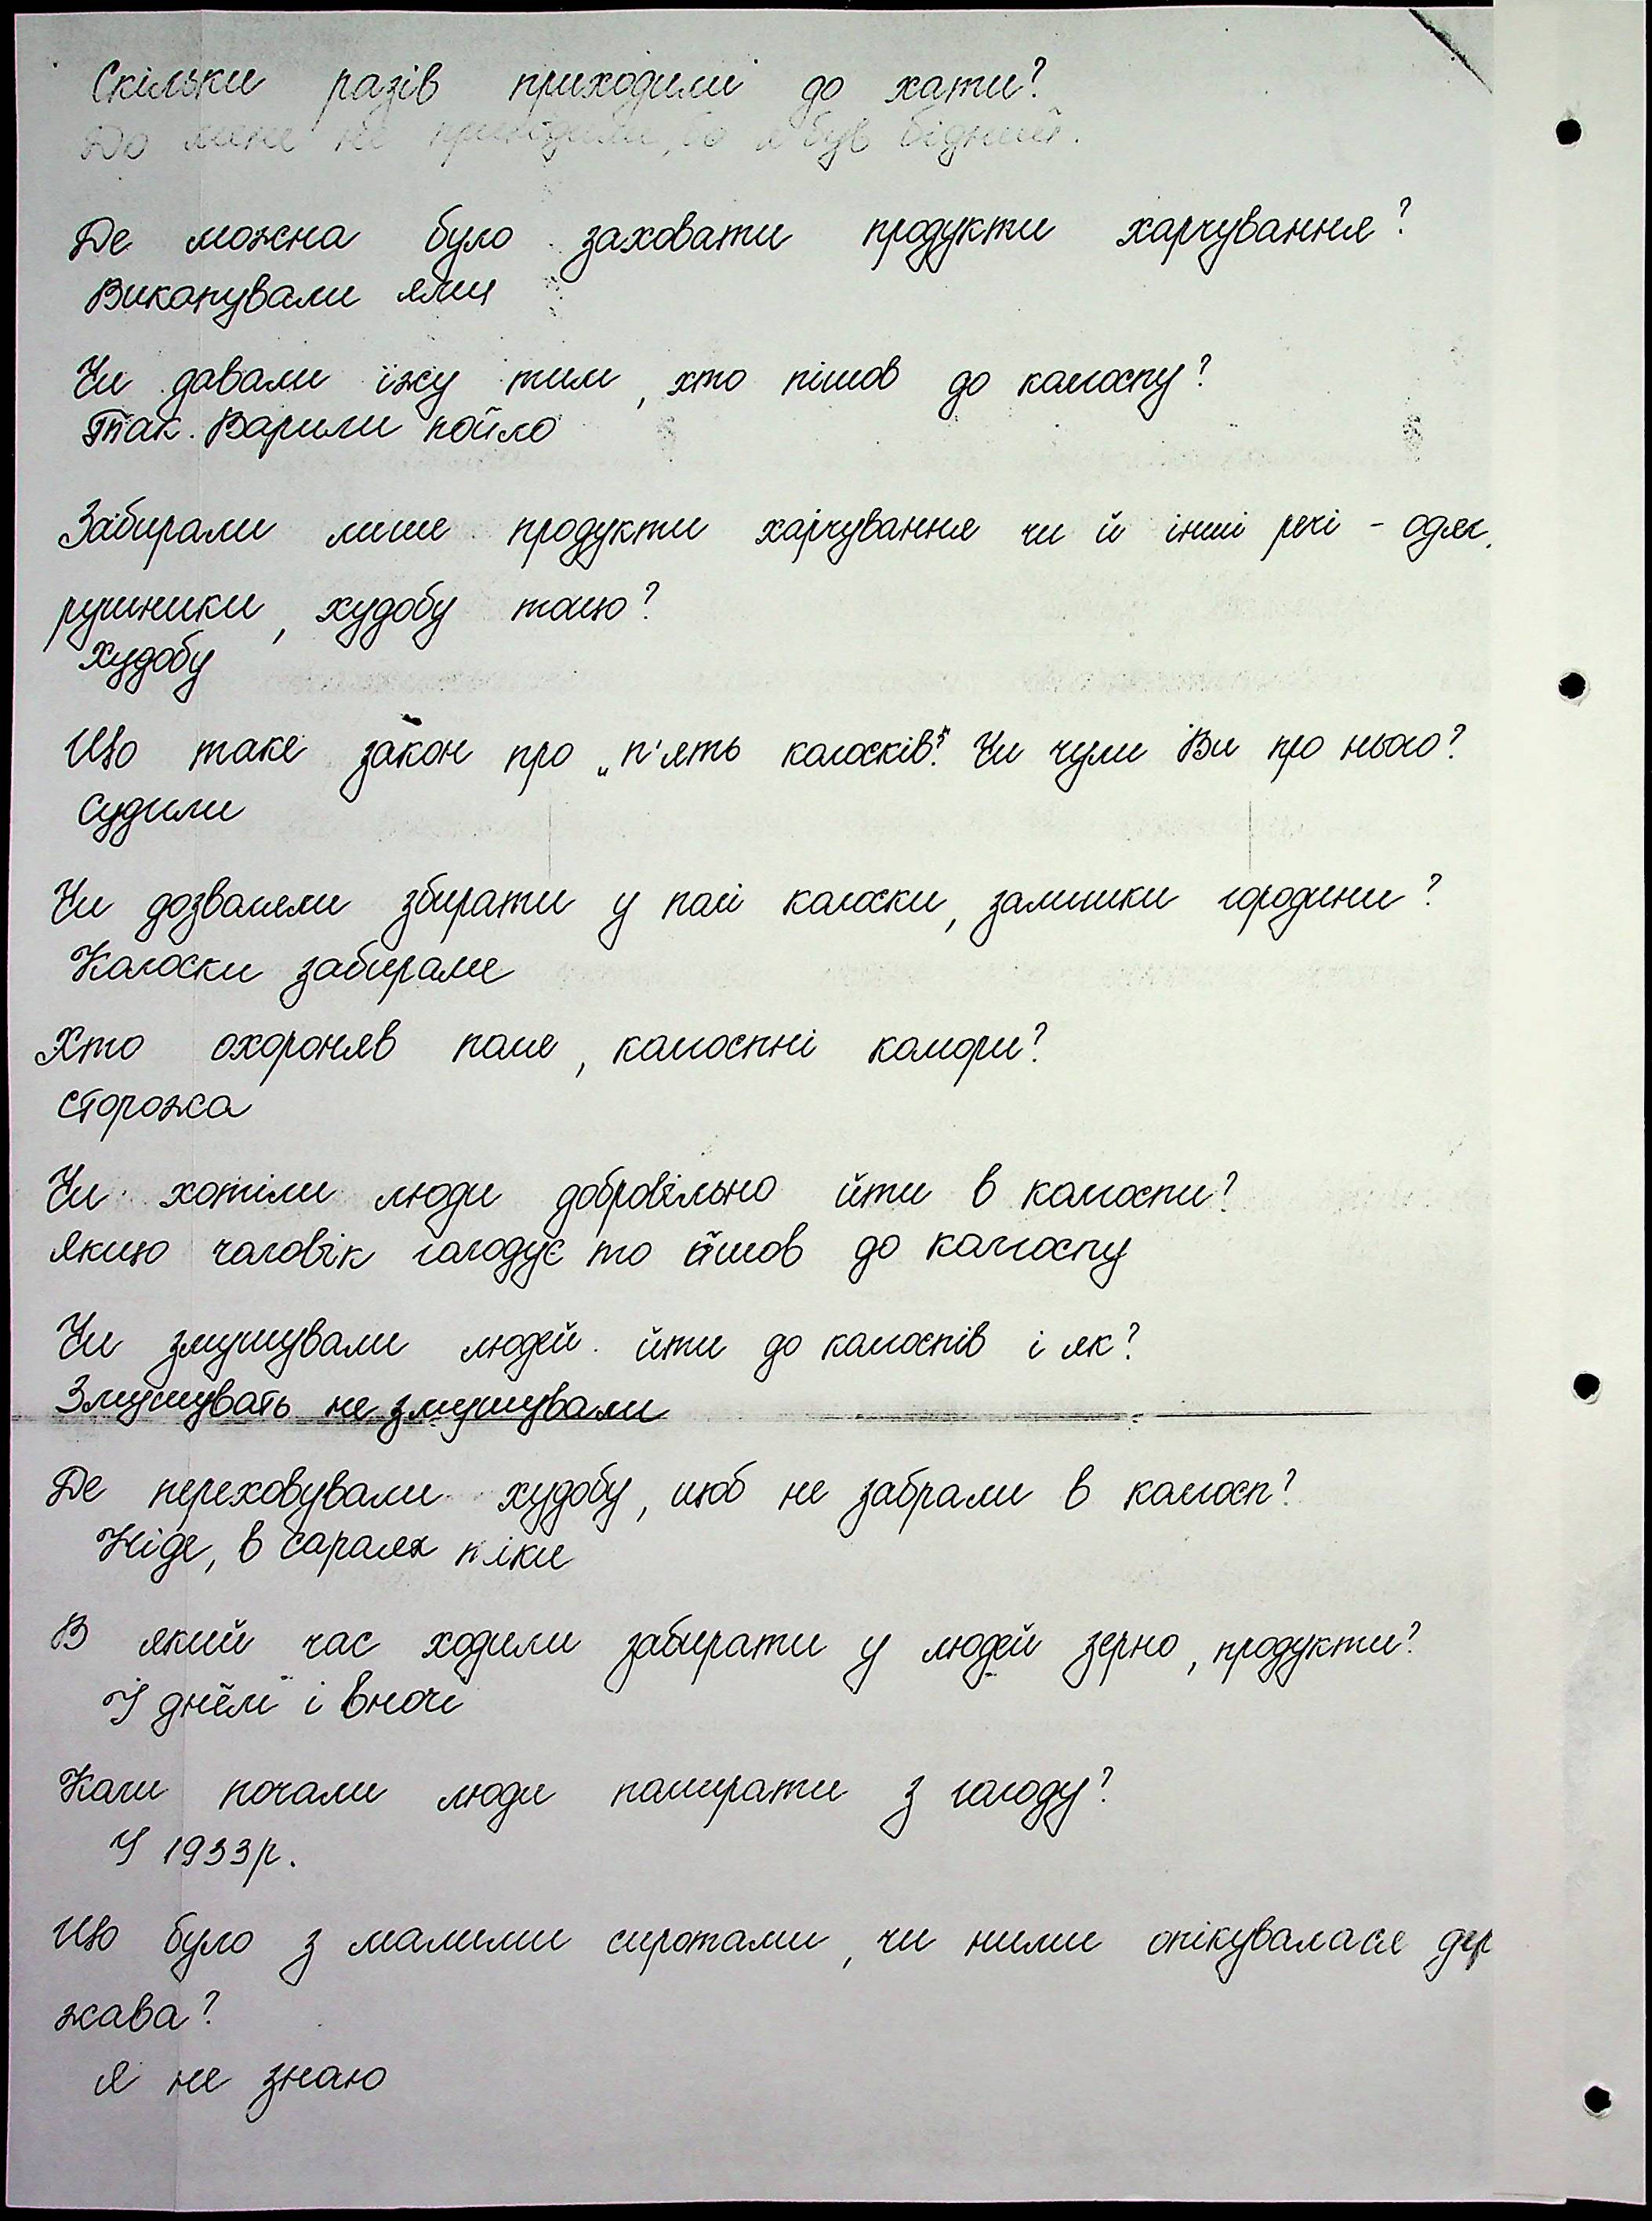 Скільки разів приходили до хати?
До мене не приходили, бо я був бідний.
Де можна було заховати продукти харчування?
Викопували ями
Чи давали їжу тим, хто пішов до колгоспу?
Так. Варили пойло
Забирали лише продукти харчування чи й інші речі - одяг,
рушники, худобу тощо?
Худобу
Що таке закон про „п'ять колосків"? Чи чули Ви про нього?
Судили
Чи дозволяли збирати у полі колоски, залишки городини?
Колоски забирали
Хто охороняв поле, колгоспні комори?
Сторожа
Чи хотіли люди добровільно йти в колгоспи?
Якщо чоловік голодує то йшов до колгоспу
Чи змушували людей йти до колгоспів і як?
Змушувать не змушували
Де переховували худобу, щоб не забрали в колгосп?
Ніде, в сараях
В який час ходили забирати у людей зерно, продукти?
І днём і вночі
Коли почали люди помирати з голоду?
У 1933р.
Що було з малими сиротами, чи ними опікувалася дер
жава?
Я не знаю